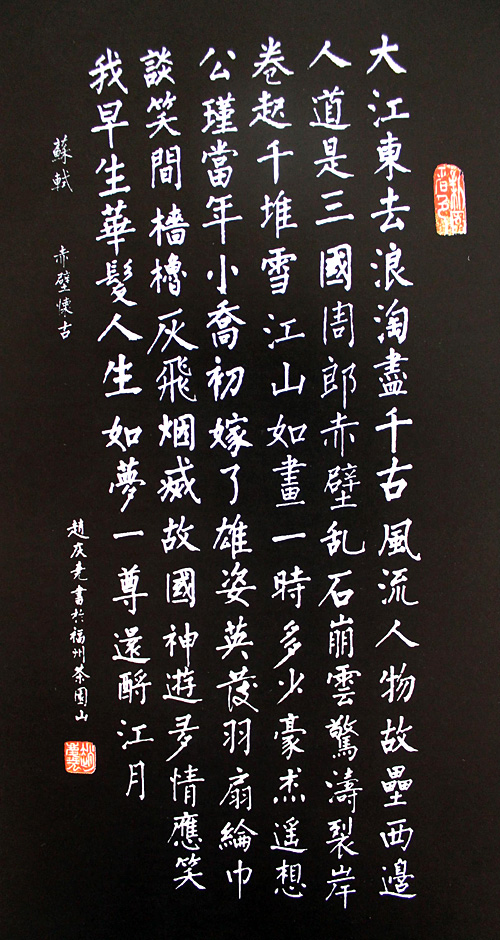 大江東去浪淘盡千古風流人物故壘西邊
人道是三國周郎赤壁乱石崩雲驚濤裂岸
卷起千堆雪江山如畫一時多少豪杰遥想
公瑾當年小喬初嫁了雄姿英發羽扇綸巾
談笑間檣櫓灰飛烟烕故國神遊多情應笑
我早生華髮人生如夢一尊還酹江月
蘇軾 赤壁懷古
趙庆尭書於福州茶園山